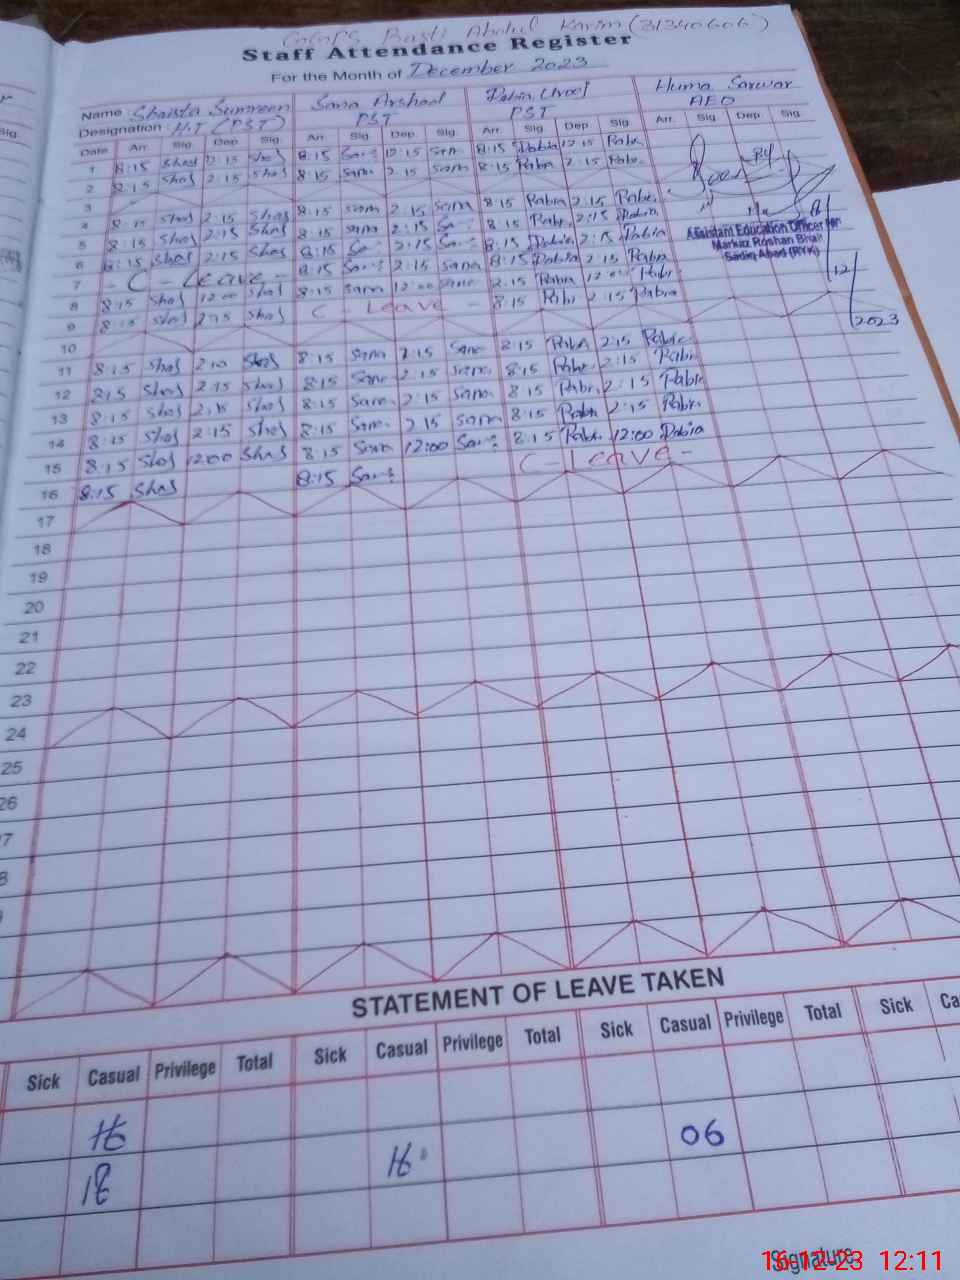 Basti Abdul Karim (31340606)
Staff Attendance Register
For the Month of December 2023
Name Shaista Sumreen Sana Arshad Rabia Huma Sarwar
Designation H.T (PST) PST PST AEO
Date Arr. Sig. Dep. Sig. Arr. Sig. Dep. Sig. Arr. Sig. Dep. Sig. Arr. Sig. Dep. Sig.
1 8:15 Shas 12:15 Shas 8:15 Sana 12:15 Sana 8:15 Rabia 12:15 Rabia
2 8:15 Shas 2:15 Shas 8:15 Sana 2:15 Sana 8:15 Rabia 2:15 Rabia
3
4 8:15 Shas 2:15 Shas 8:15 Sana 2:15 Sana 8:15 Rabia 2:15 Rabia
5 8:15 Shas 2:15 Shas 8:15 Sana 2:15 Sana 8:15 Rabia 2:15 Rabia
6 8:15 Shas 2:15 Shas 8:15 Sana 2:15 Sana 8:15 Rabia 2:15 Rabia
7 - C - Leave - 8:15 Sana 2:15 Sana 8:15 Rabia 2:15 Rabia
8 8:15 Shas 12:00 Shas 8:15 Sana 12:00 Sana 2:15 Rabia 12:00 Rabia
9 8:15 Shas 2:15 Shas C - Leave - 8:15 Rabia 2:15 Rabia
10
11 8:15 Shas Shas 8:15 Sana 2:15 Sana 8:15 Rabia 2:15 Rabia
12 8:15 Shas 2:15 Shas 8:15 Sana 2:15 Sana 8:15 Rabia 2:15 Rabia
13 8:15 Shas 2:15 Shas 8:15 Sana 2:15 Sana 8:15 Rabia 2:15 Rabia
14 8:15 Shas 2:15 Shas 8:15 Sana 2:15 Sana 8:15 Rabia 2:15 Rabia
15 8:15 Shas 12:00 Shas 8:15 Sana 12:00 Sana 8:15 Rabia 12:00 Rabia
16 8:15 Shas 8:15 Sana C - Leave -
Assistant Education Officer
Markaz Roshan Bhait
Sadiq Abad (RYK)
12
2023
17
18
19
20
21
22
23
24
25
26
STATEMENT OF LEAVE TAKEN
Sick Casual Privilege Total Sick Casual Privilege Total Sick Casual Privilege Total Sick Ca
16 06
18 16
Signature
16-12-23 12:11